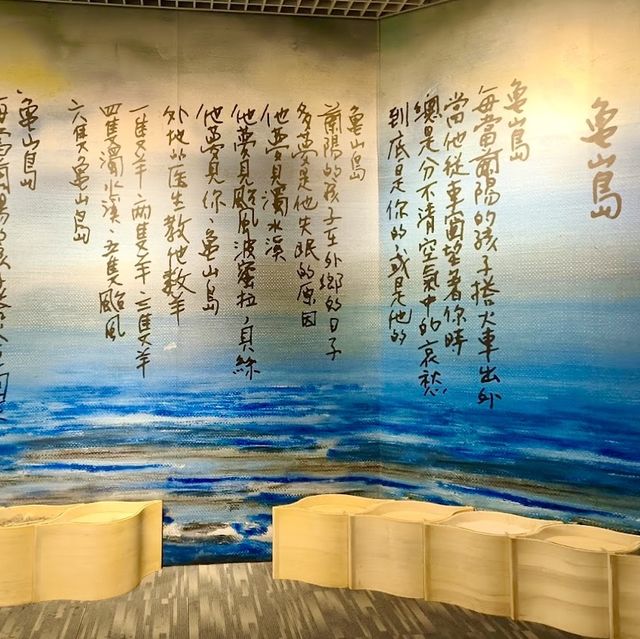 龜山島
龜山島
每當蘭陽的孩子搭火車出外
當他從車窗望著你時
總是分不清空氣中的哀愁
到底是你的，或是他的
龜山島
蘭陽的孩子在外鄉的日子
多夢是他失眠的原因
他夢見濁水溪
他夢見颱風波蜜拉，貝絲
他夢見你，龜山島
外地的医生教他数羊
一隻羊、兩隻羊、三隻羊
四隻濁水溪、五隻颱風
六隻龜山島
龜山島
每當蘭陽的孩子搭